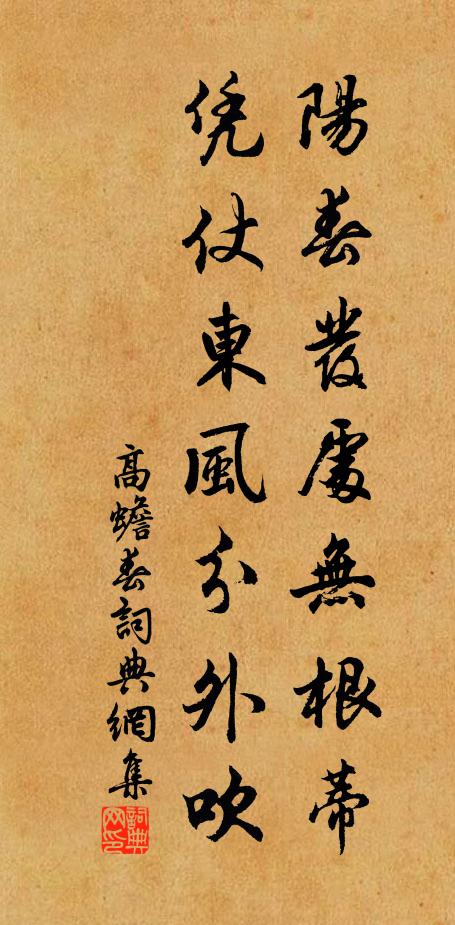 陽春發處無根蒂
凭仗東風分外吹
高蟾春詞典網集
詞典网印